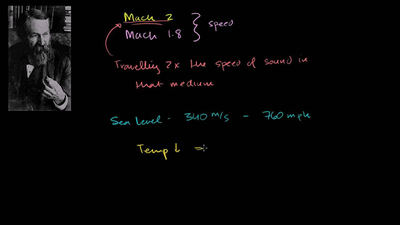 Mach 2
Mach 1.8 } speed
Travelling 2x the speed of sound in
that medium
Sea Level - 340 m/s - 760 mph
Temp ↓ ⇒